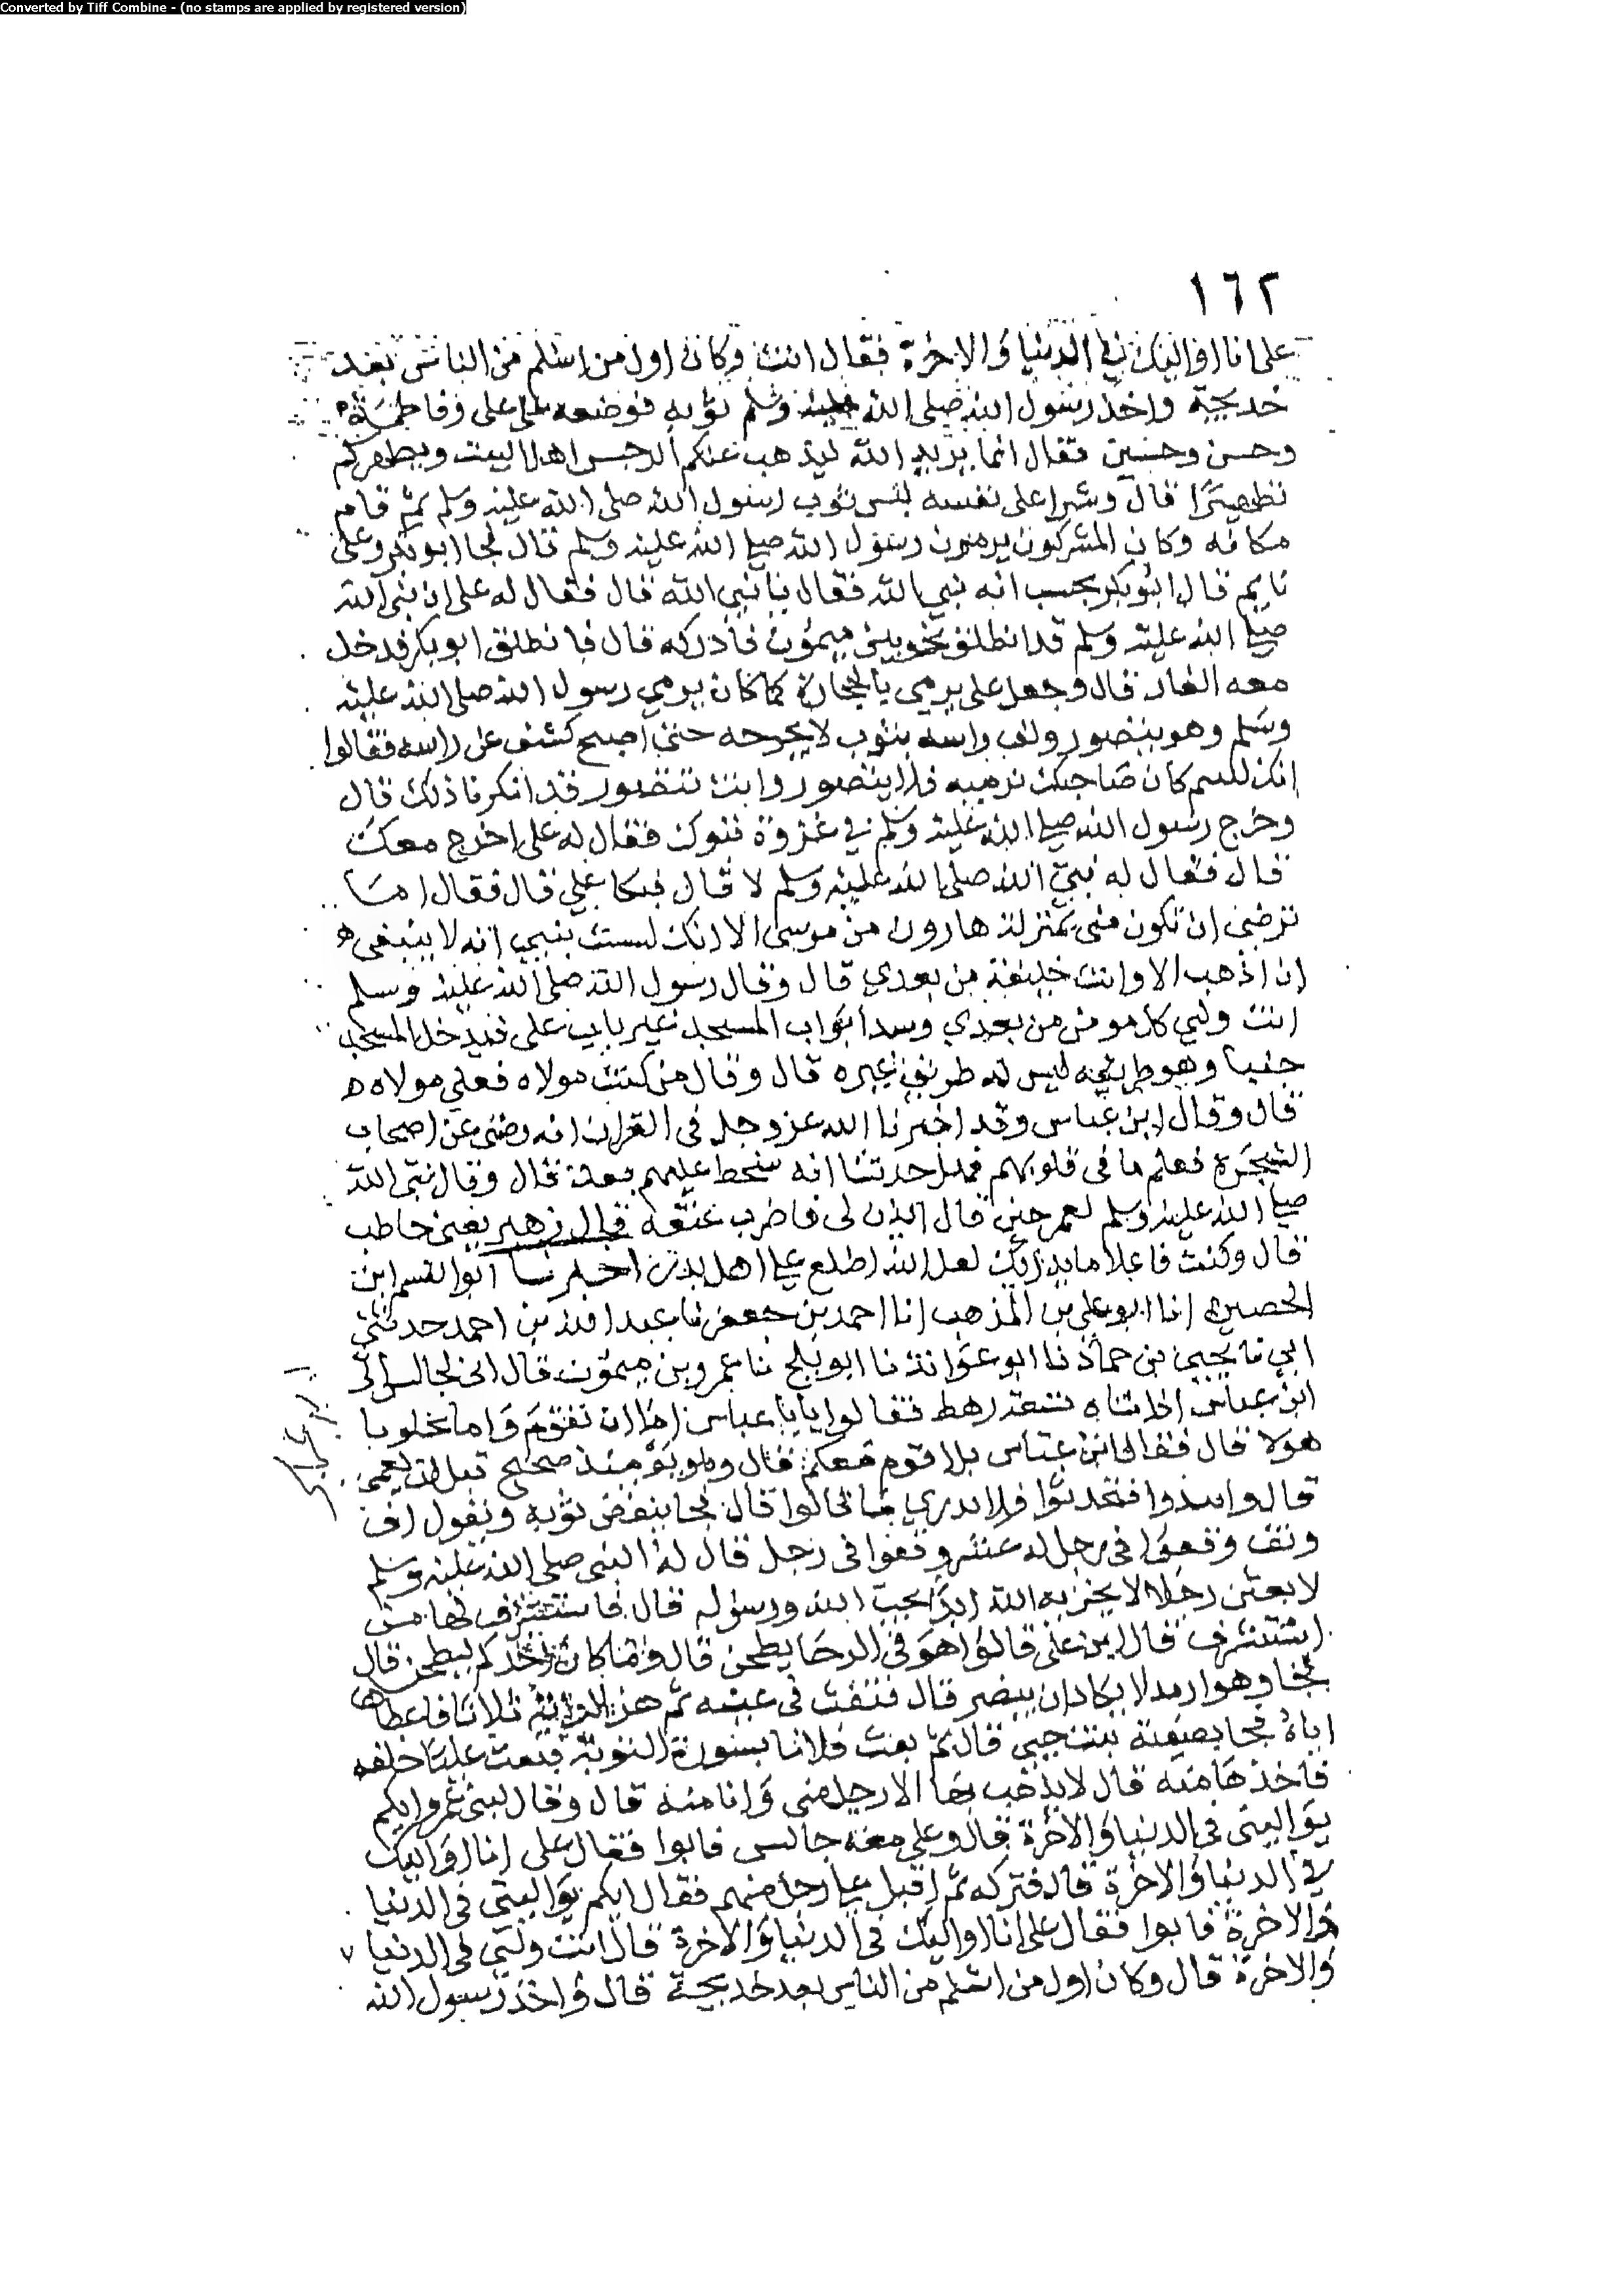 Converted by Tiff Combine - (no stamps are applied by registered version)
١٦٢
على انا اواليك في الدنيا والاخرة فقال انت وكان اول من اسلم من الناس بعد
خديجة واخذ رسول الله صلى الله عليه وسلم ثوبه فوضعه على على وفاطمة
وحسن وحسين فقال انما يريد الله ليذهب عنكم الرجس اهل البيت ويطهركم
تطهيرا قال وشرا على نفسه لبس ثوب رسول الله صلى الله عليه وسلم ثم قام
مكانه وكان المشركون يرمون رسول الله صلى الله عليه وسلم قال فجا ابو بكر وعلى
نايم قال ابو بكر يحسب انه نبي الله فقال يا نبي الله قال فقال له على ان نبي الله
صلى الله عليه وسلم قد انطلق نحو بير ميمون فادركه قال فانطلق ابو بكر فدخل
معه الغار قال وجعل على يرمى بالحجارة كما كان يرمي رسول الله صلى الله عليه
وسلم وهو يتضور ولف راسه بثوب لا يخرجه حتى اصبح كشف عن راسه فقالوا
انك للسم كان صاحبك نرميه فلا يتضور وانت تتضور قد انكرنا ذلك قال
وخرج رسول الله صلى الله عليه وسلم في غزوة تبوك فقال له على اخرج معك
قال فقال له نبي الله صلى الله عليه وسلم لا قال فبكا علي قال فقال اما
ترضى ان تكون منى بمنزلة هارون من موسى الا انك لست بنبي انه لا ينبغى
ان اذهب الا وانت خليفة من بعدي قال وقال رسول الله صلى الله عليه وسلم
انت ولي كل مومن من بعدي وسد ابواب المسجد غير باب على فيدخل المسجد
جنبا وهو طريقه ليس له طريق غيره قال وقال من كنت مولاه فعلي مولاه
قال وقال ابن عباس وقد اخبرنا الله عزوجل في القران انه رضى عن اصحاب
الشجرة فعلم ما فى قلوبهم فهل حدثنا انه سخط عليهم بعد قال وقال نبي الله
صلى الله عليه وسلم لعمر حين قال ايذن لى فاضرب عنقه قال زهير يعني حاطب
قال وكنت فاعلا ما يدريك لعل الله اطلع على اهل بدر اخبرنا ابو القسم ابن
الحصين انا ابو على بن المذهب انا احمد بن جعفر نا عبد الله بن احمد حدثني
ابي نا يحيى بن حماد نا ابو عوانة نا ابو بلج نا عمرو بن ميمون قال انى لجالس الى
ابن عباس اذ اتاه تسعة رهط فقالوا يابا عباس اما ان تقوم واما تخلو يا
هولا قال فقال ابن عباس بل اقوم معكم قال وهو يومئذ صحيح قبل ان يعمى
قال وابتدوا فتحدثوا فلا ندري ما قالوا قال فجا ينفض ثوبه ويقول اف
وتف وقعوا في رجل له عشر وقعوا فى رجل قال له النبى صلى الله عليه وسلم
لا بعثن رجلا لا يخزيه الله ابدا يحب الله ورسوله قال فاستشرف لها من
استشرف قال اين على قالوا هو في الرحا يطحن قال وما كان احدكم ليطحن قال
فجا وهو ارمد لا يكاد ان يبصر قال فنفث في عينه ثم هز الراية ثلاثا فاعطاها
اياه فجا بصفية بنت حيي قال ثم بعث فلانا بسورة التوبة فبعث عليا خلفه
فاخذها منه قال لا يذهب بها الا رجل منى وانا منه قال وقال لبنى عمه ايكم
يواليني في الدنيا والاخرة قال وعلى معه جالس فابوا فقال على انا اواليك
في الدنيا والاخرة قال فتركه ثم اقبل على رجل منهم فقال ايكم يواليني في الدنيا
والاخرة فابوا فقال على انا اواليك في الدنيا والاخرة قال انت ولي في الدنيا
والاخرة قال وكان اول من اسلم من الناس بعد خديجة قال واخذ رسول الله